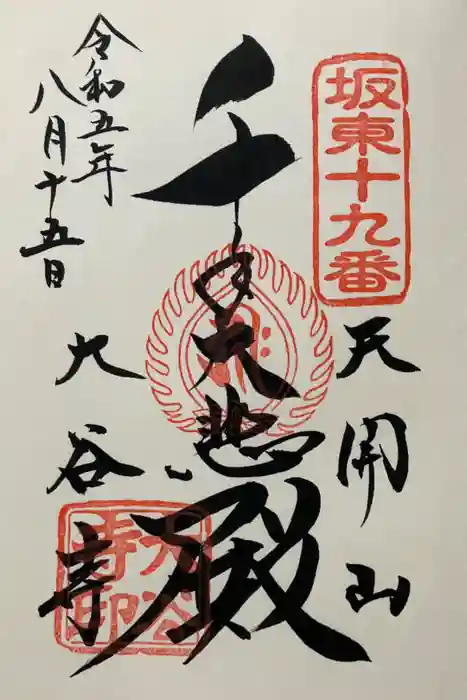 坂東十九番
天開山
千手大悲殿
大谷寺
令和五年
八月十五日
大谷寺印